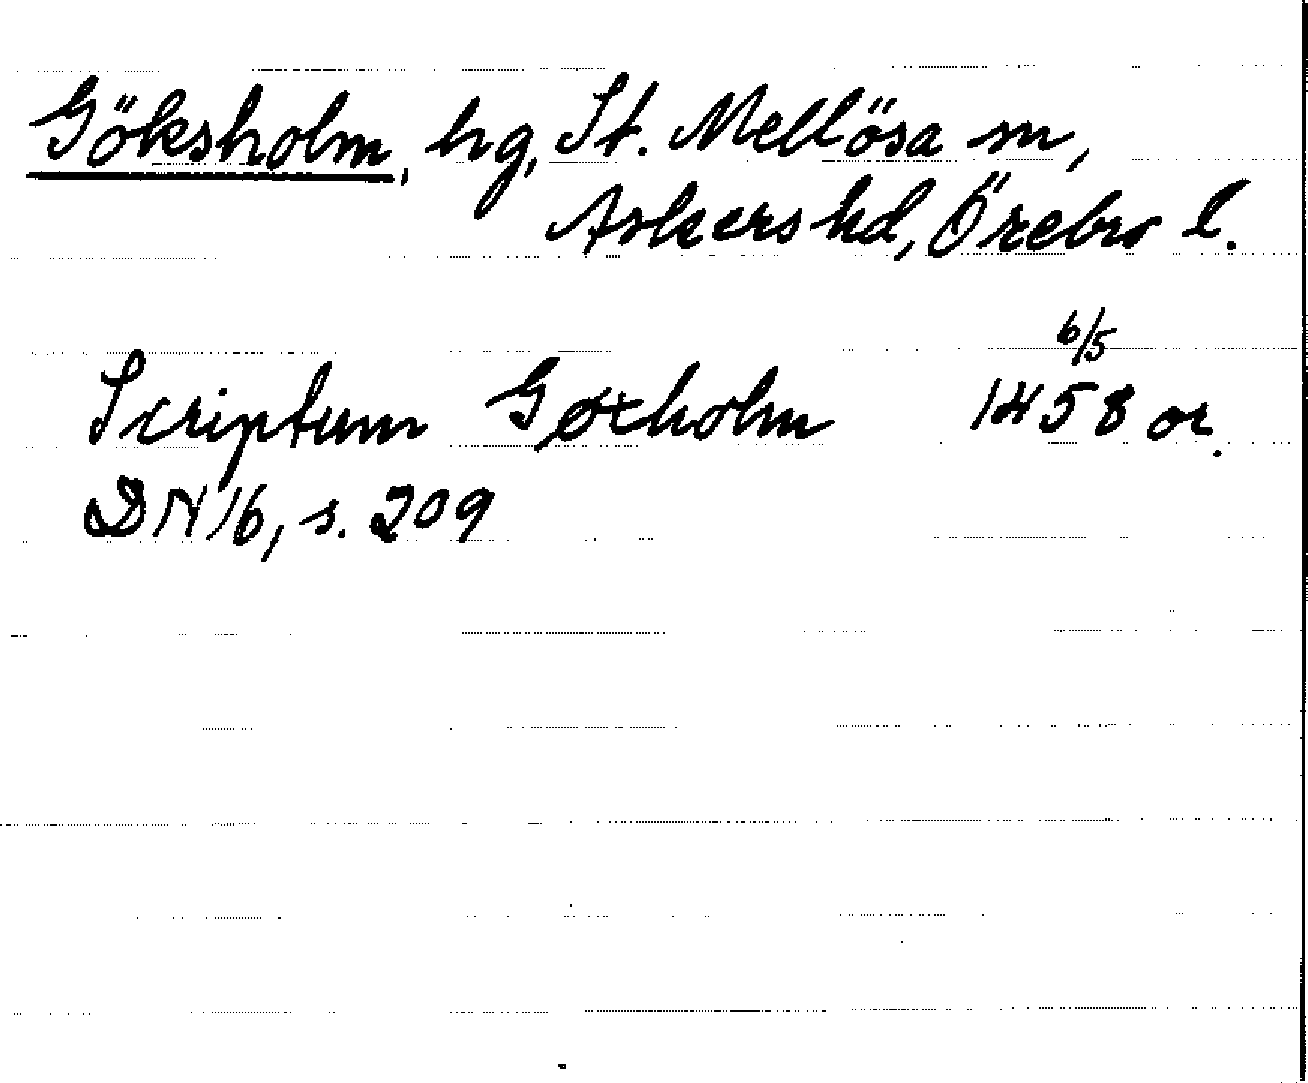 Göksholm, hg, St. Mellösa sn,
Askers hd, Örebro l.
Scriptum Gøxholm 6/5 1458 or.
DN 16, s. 209